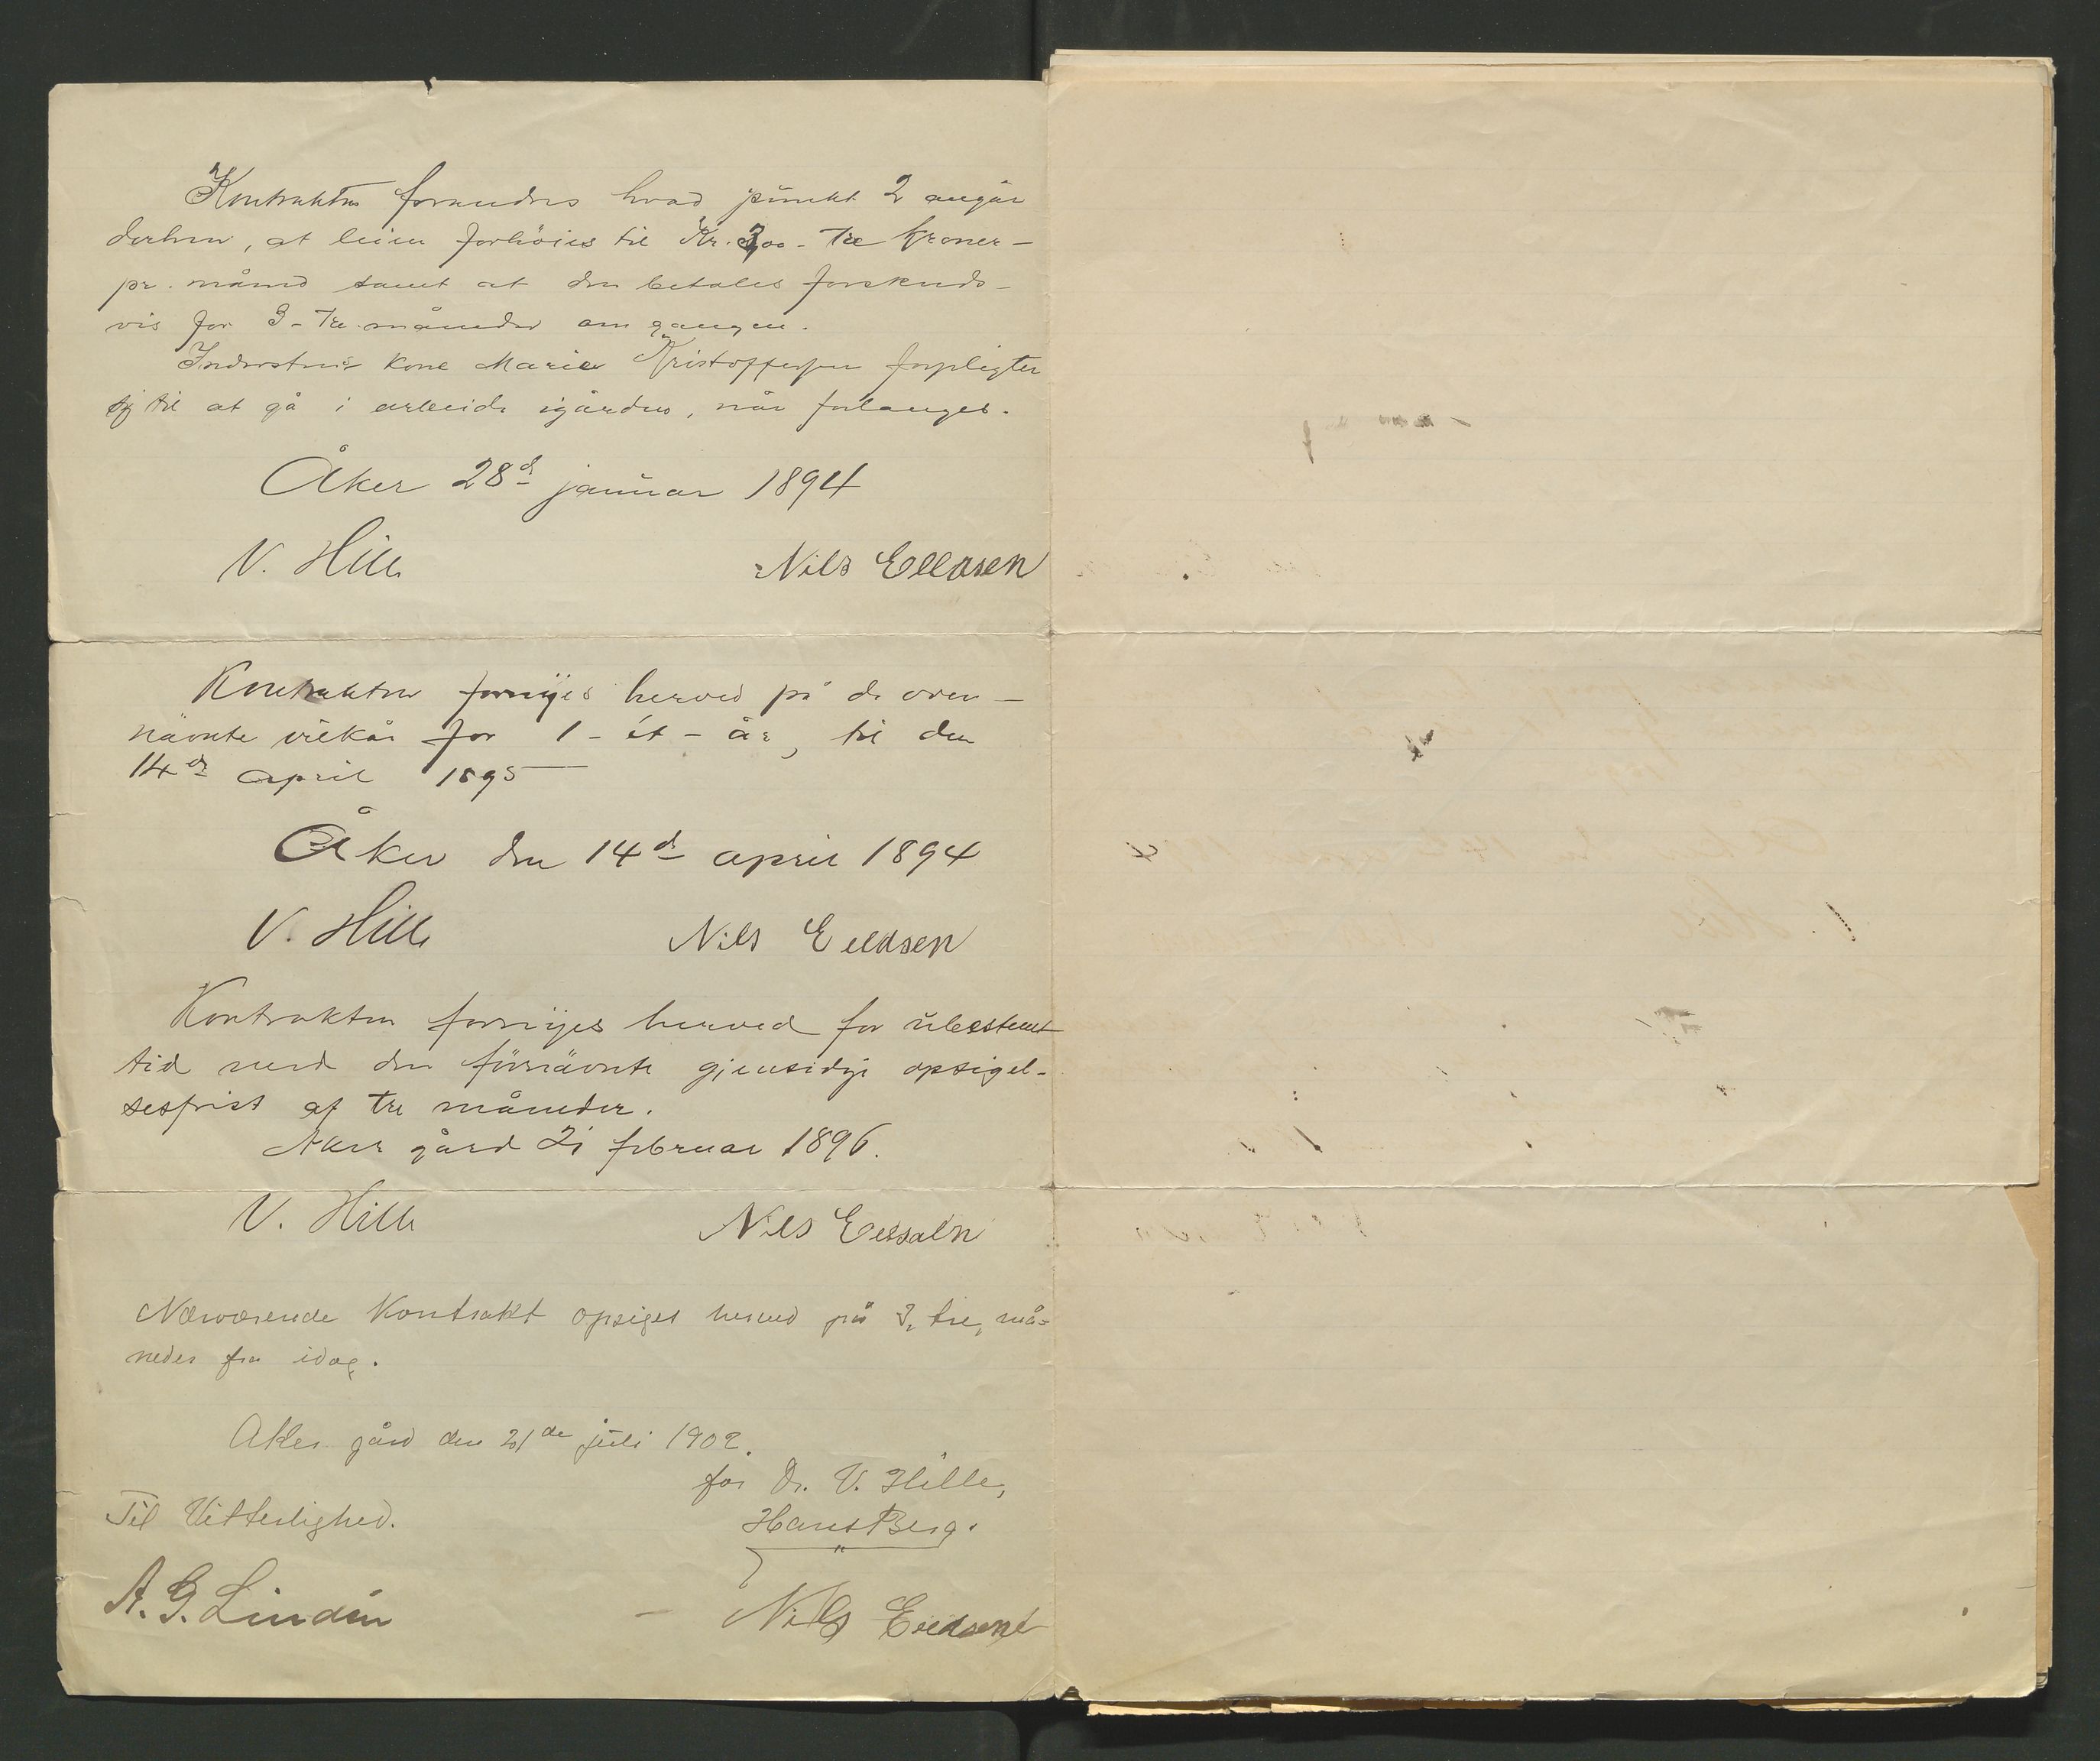 Kontrakten forandres hvad punkt 2 angår
derhen, at leien forhöies til Kr. 3,00 - Tre kroner -
pr. måned samt at den betales forskuds-
vis for 3 - Tre måneder om gangen.
Inderstens kone Marie Kristoffersen forpligter
sig til at gå i arbeide i gården, når forlanges.
Åker 28d januar 1894
V. Hille
Nils Elldsen
Kontrakten fornÿes herved på de oven-
nävnte vilkår for 1 - ét - år, til den
14de april 1895
Åker den 14de april 1894
V. Hille
Nils Eeldsen
Kontrakten fornyes herved for ubestemt
tid med den förnävnte gjensidige opsigel-
sesfrist af tre måneder.
Aker gård 21 februar 1896.
V. Hille
Nils
Nærværende Kontrakt opsiges herved på 3, tre, må-
neder fra idag.
Aker gård den 21de juli 1902.
for Dr. V. Hille,
Hans Berg.
Til Vitterlighed.
A. G. Lindén
Nils